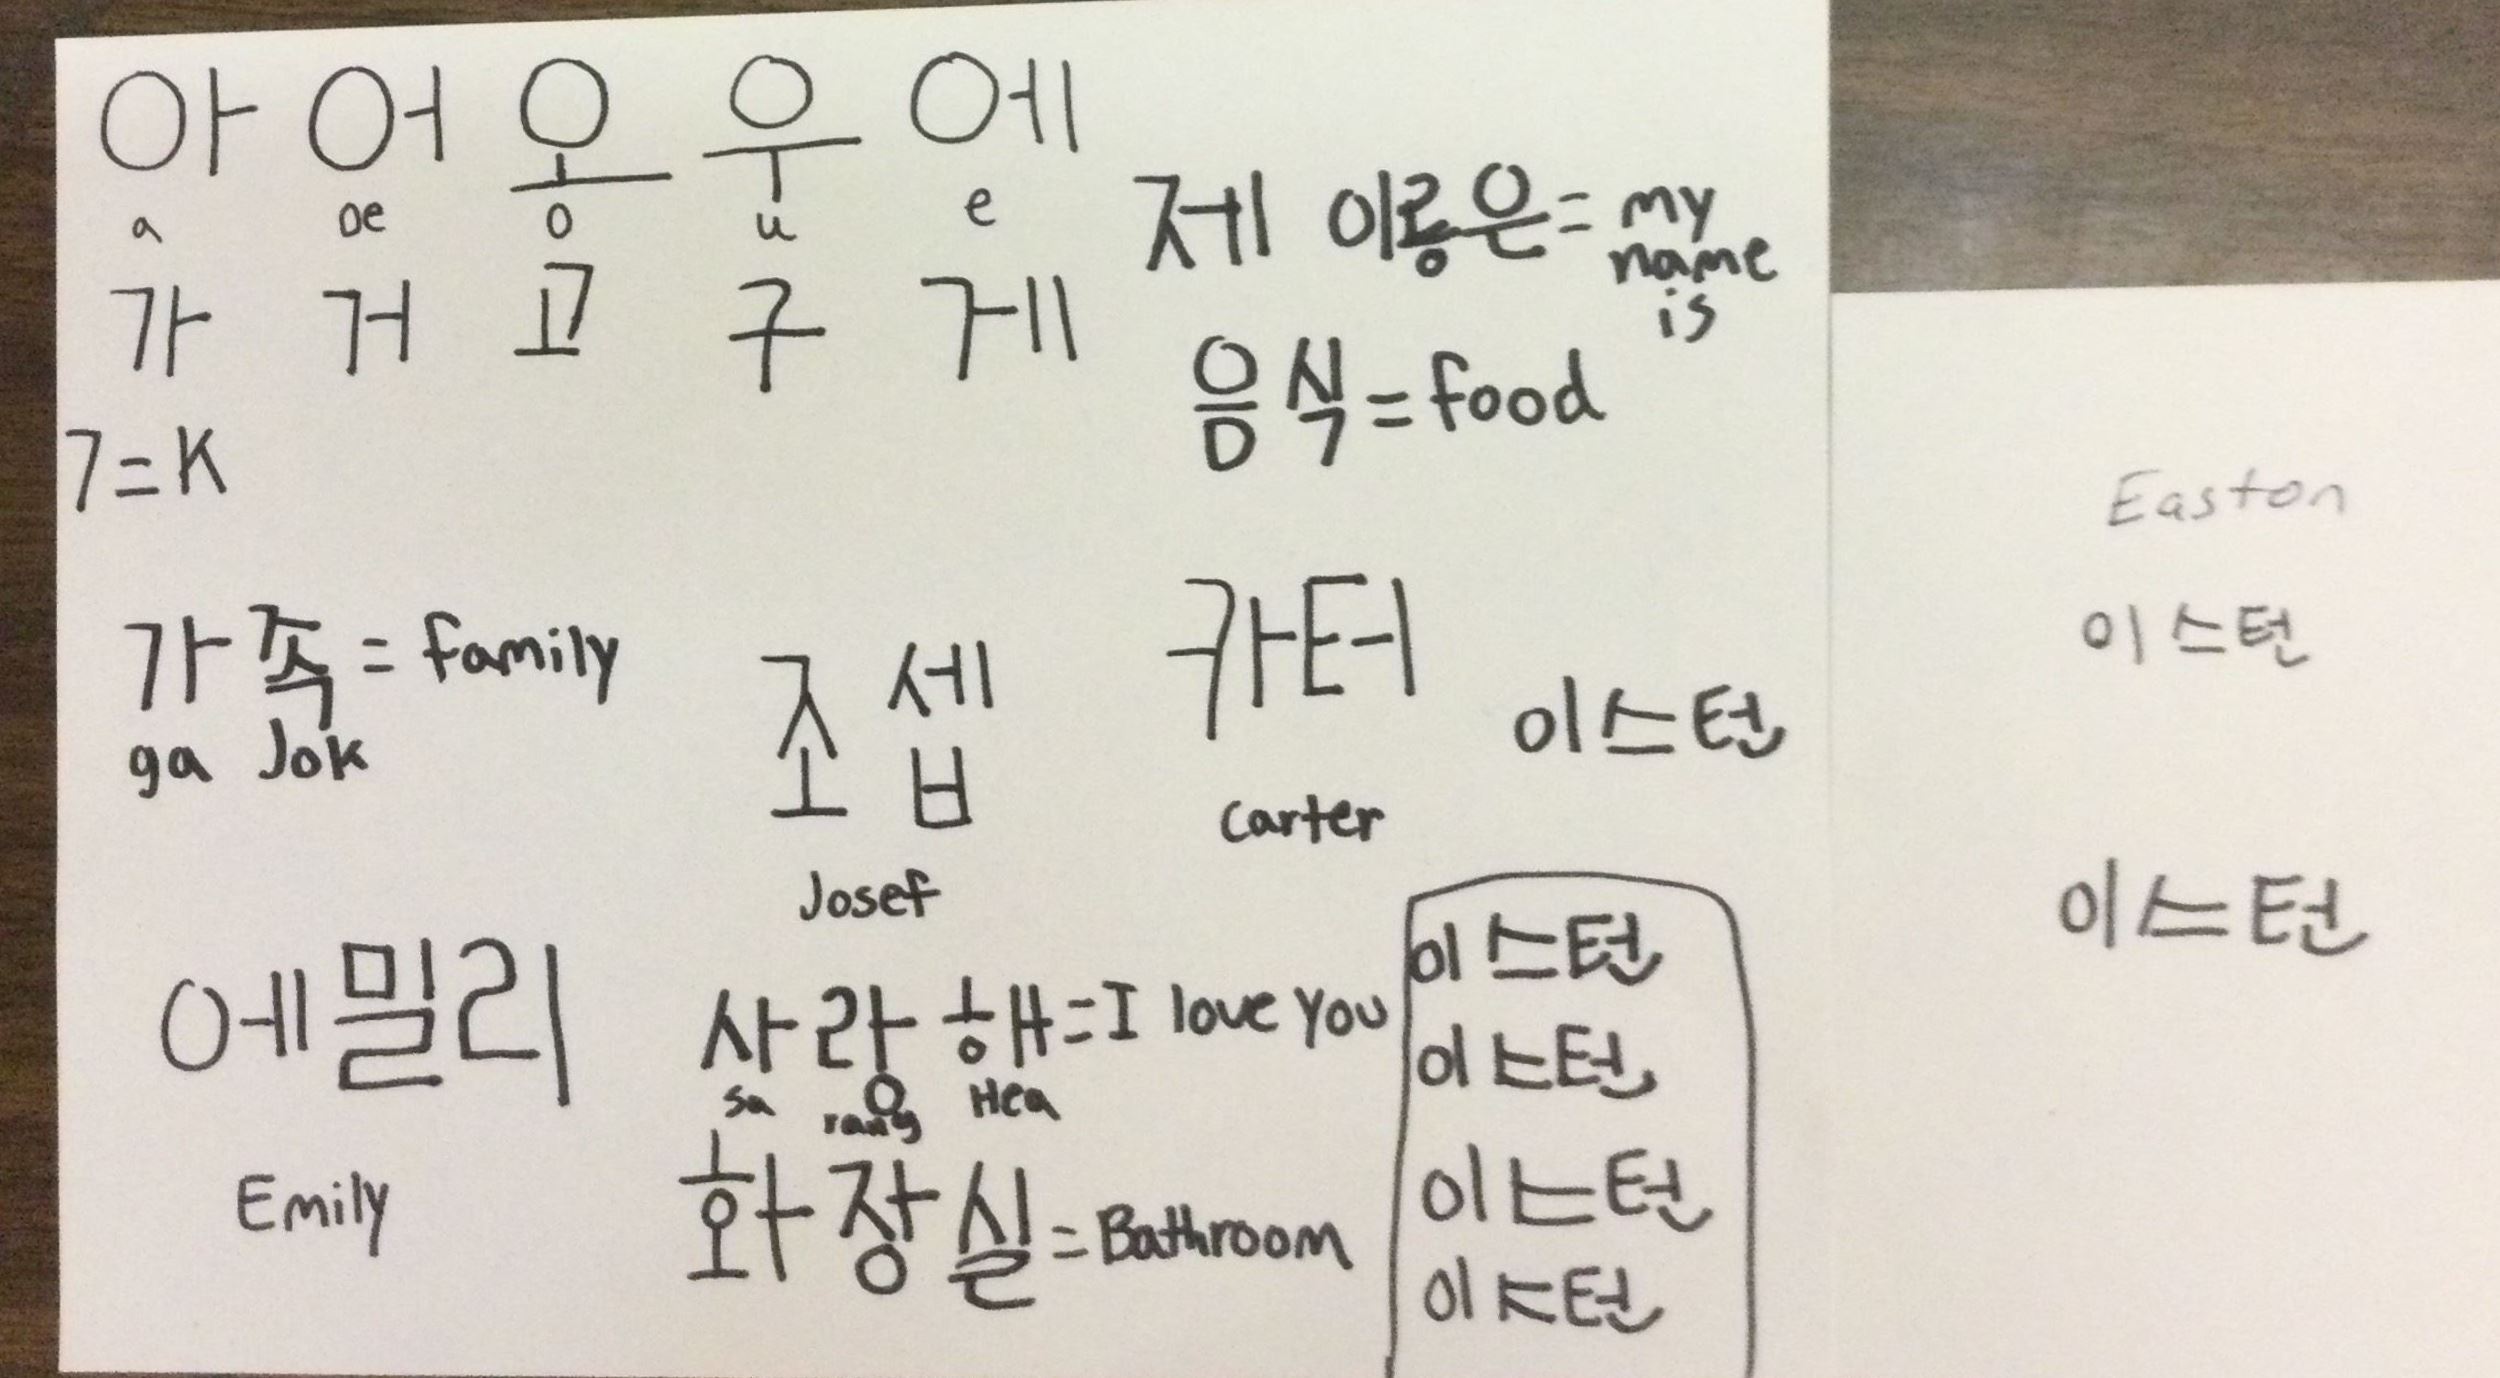 아 어 오 우 에
a oe o u e
가 거 고 구 게
ㄱ=K
제 이릉은= my name is
음식=food
가족= family
ga Jok
조셉
Josef
카터
Carter
이스턴
에밀리
Emily
사랑해=I love You
sa rang Hea
화장실=Bathroom
이스턴
이스턴
이스턴
이스턴
Easton
이스턴
이스턴